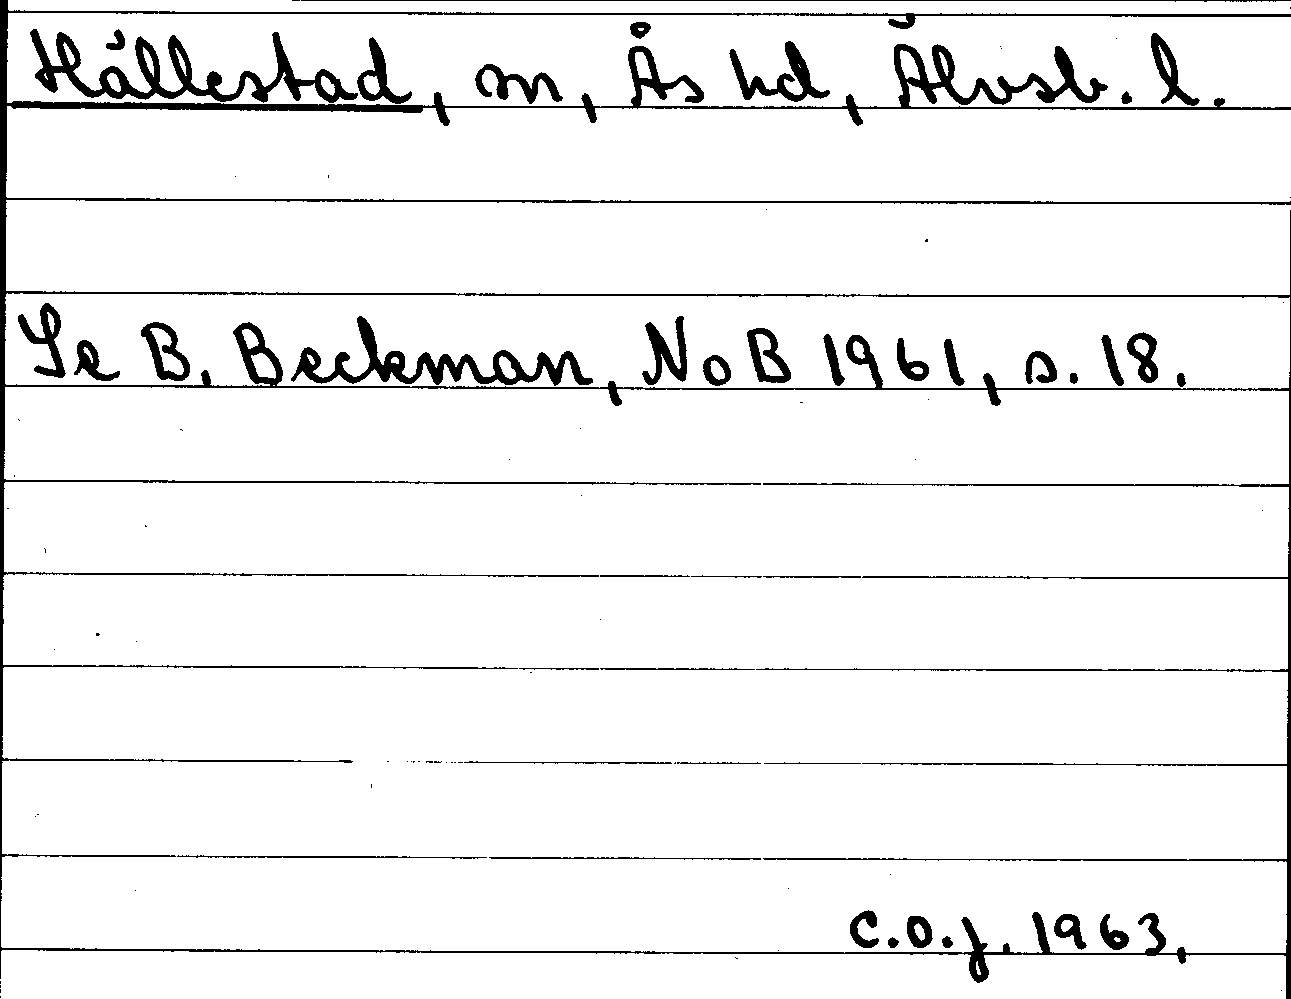 Hällestad, sn, Ås hd, Älvsb. l.
Se B. Beckman, NoB 1961, s. 18.
C.O.J. 1963.